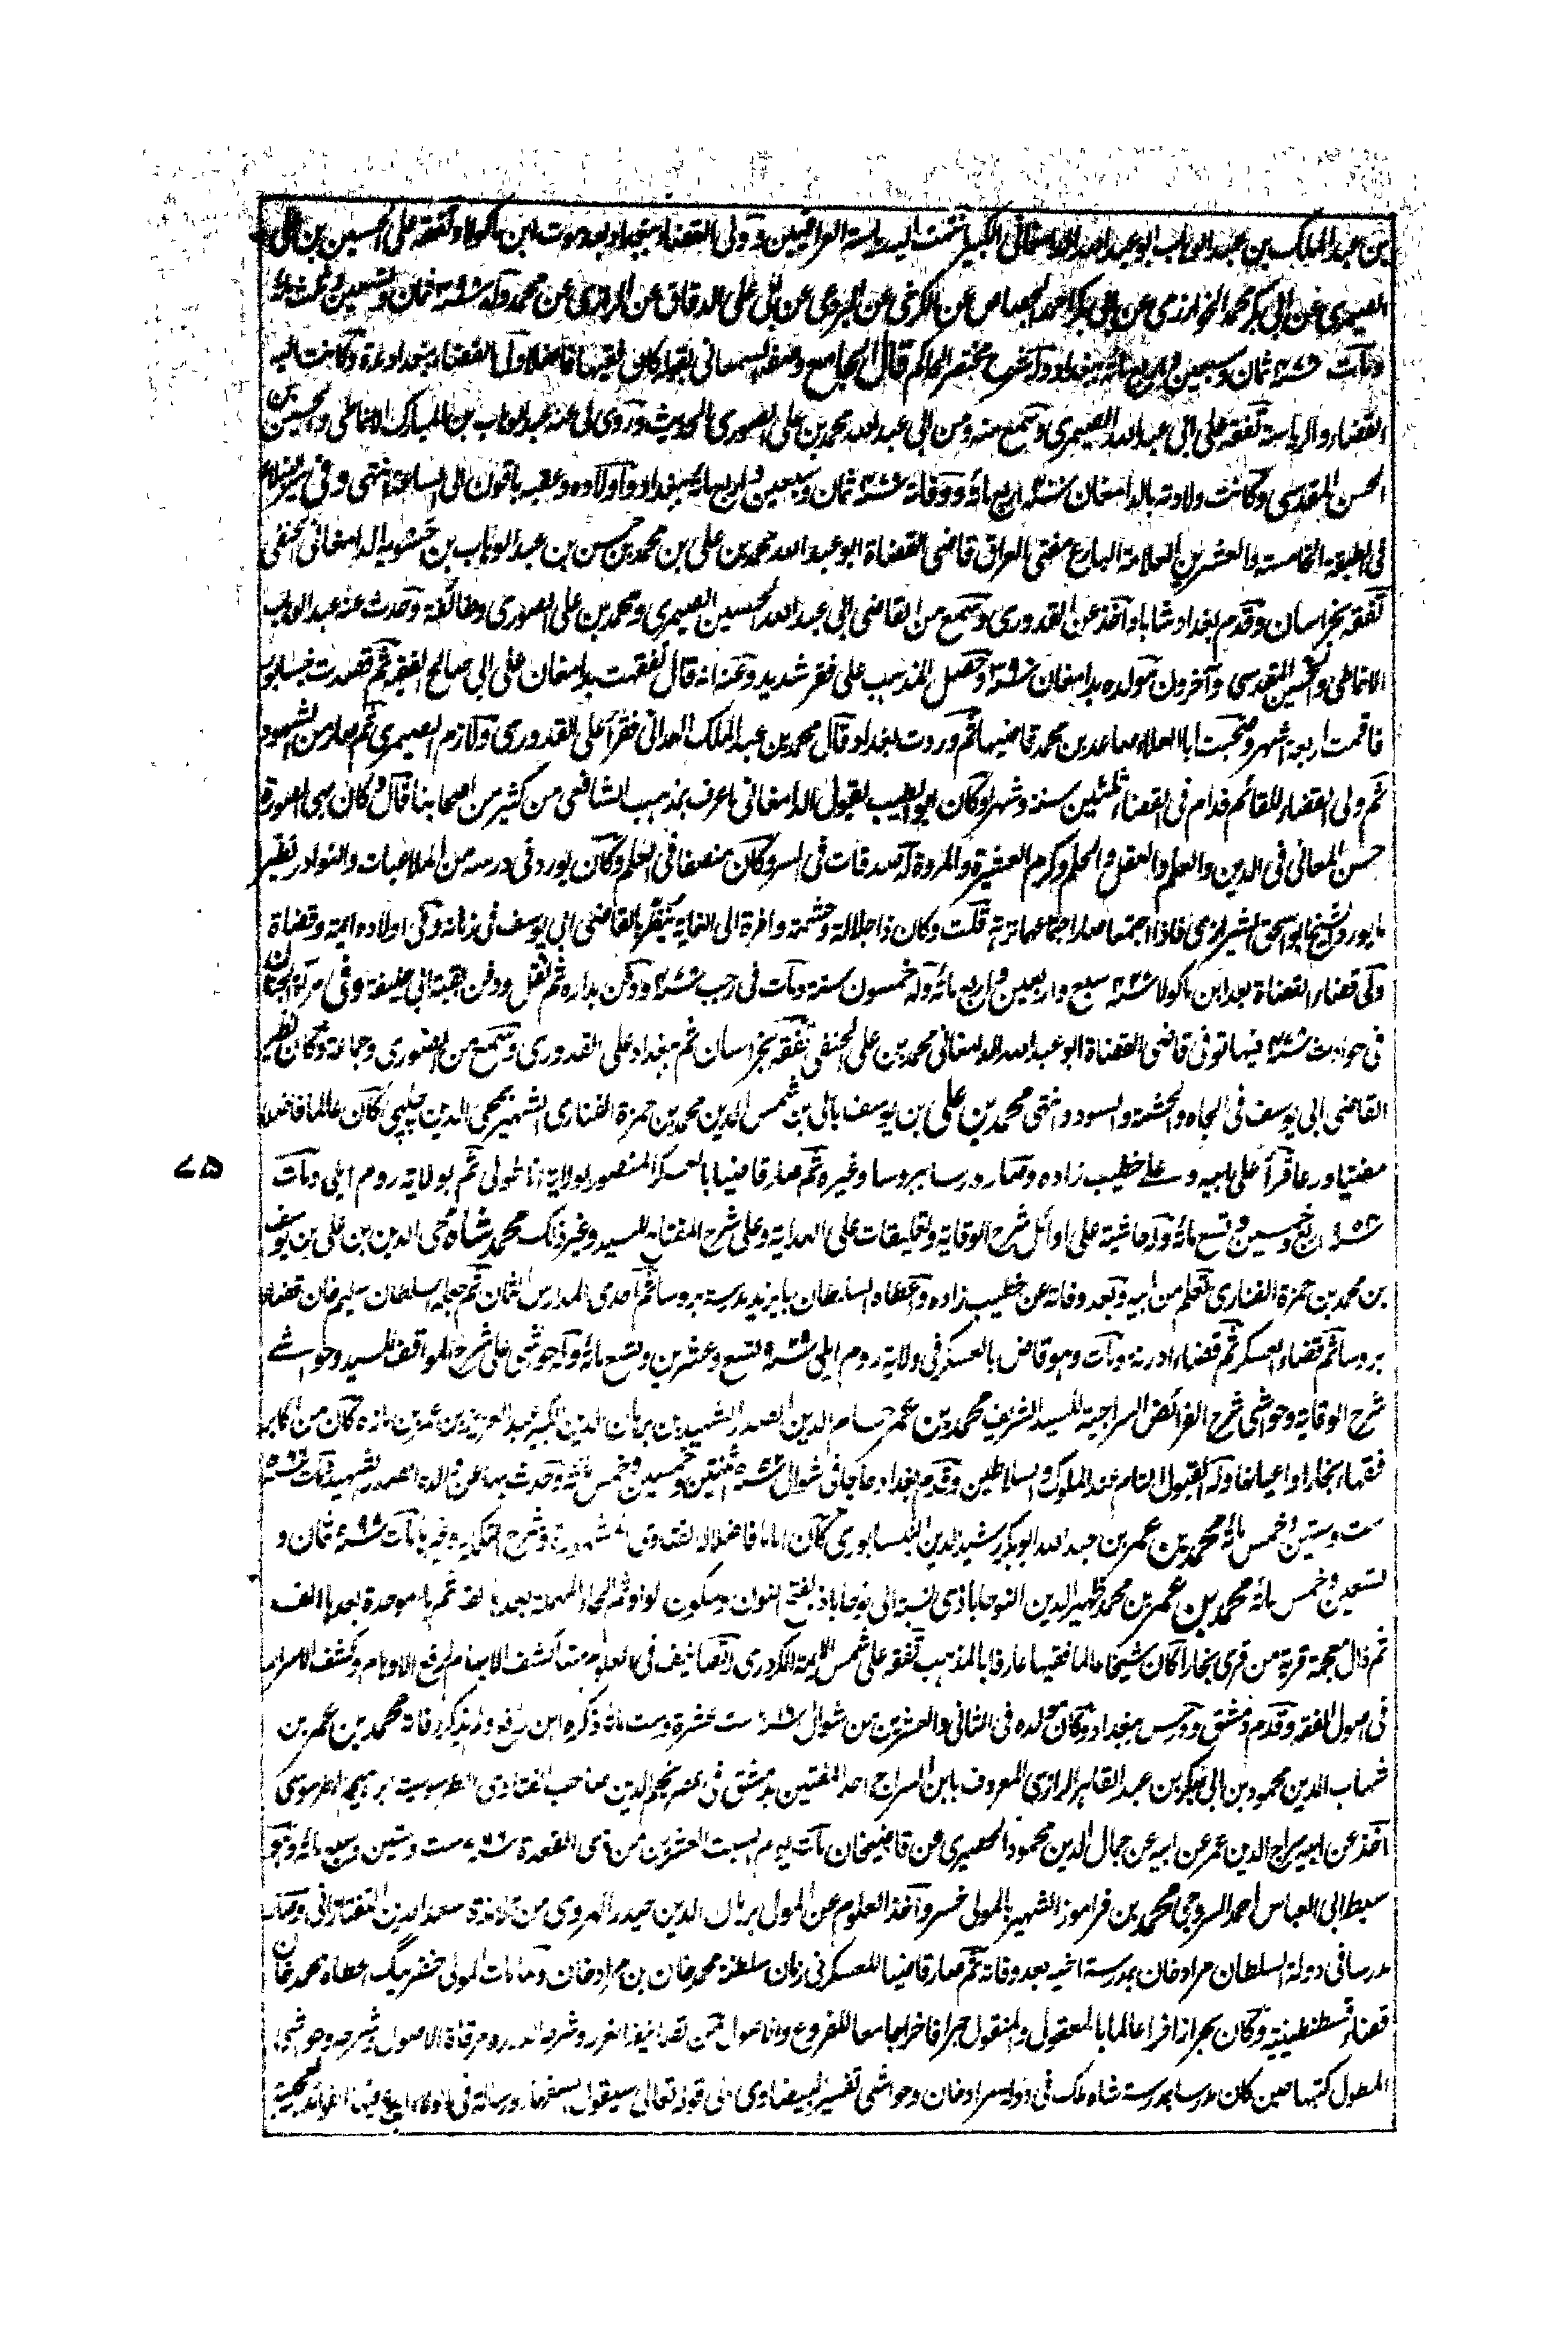 بن عبد الملك بن عبد الوهاب ابو عبد الله الدامغانى الكبير انتهت اليه رياسة العراقيين وولى القضاء ببغداد بعد موت ابن ماكولا وتفقه على الحسين بن على
الصيمرى عن ابى بكر محمد الخوارزمى عن ابى بكر احمد الجصاص عن الكرخى عن البردعى عن ابى على الدقاق عن الرازى عن محمد وله سنة ثمان وتسعين وثلث مائة
ومات سنة ثمان وسبعين واربع مائة ببغداد وله شرح مختصر الحاكم قال الجامع وصفه السمعانى بقوله كان فقيها فاضلا ولى القضاء ببغداد مدة وكانت اليه
القضاء والرياسة تفقه على ابى عبد الله الصيمرى وسمع منه ومن ابى عبد الله محمد بن على الصورى الحديث وروى لى عنه عبد الوهاب بن المبارك الانماطى والحسين بن
الحسن المقدسى وكانت ولادته بالدامغان سنة اربع مائة ووفاته سنة ثمان وسبعين واربع مائة ببغداد واولاده وعقبه باقون الى الساعة انتهى وفى سير النبلاء
فى الطبقة الخامسة والعشرين العلامة البارع مفتى العراق قاضى القضاة ابو عبد الله محمد بن على بن محمد بن حسن بن عبد الوهاب بن حسويه الدامغانى الحنفى
تفقه بخراسان وقدم بغداد شابا واخذ عن القدورى وسمع من القاضى ابى عبد الله الحسين الصيمرى ومحمد بن على الصورى وطائفة وحدث عنه عبد الوهاب
الانماطى والحسين المقدسى وآخرون مولده بدامغان سنة وحصل المذهب على فقر شديد وعنه انه قال تفقهت بدامغان على ابى صالح الفقيه ثم قصدت نيسابور
فاقمت اربعة اشهر وصحبت ابا العلاء صاعد بن محمد قاضيها ثم وردت بغداد وقال محمد بن عبد الملك الهمدانى فقرأ على القدورى ولازم الصيمرى ثم صار من الشهود
ثم ولى القضاء للقائم فدام فى القضاء ثلثين سنة وشهرا وكان ابو الطيب يقول الدامغانى اعرف بمذهب الشافعى من كثير من اصحابنا قال وكان بهى الصورة
حسن المعانى فى الدين والعلم والعقل والحلم وكرم العشيرة والمروة له صدقات فى السر وكان منصفا فى العلم وكان يورد فى درسه من الملاعبات والنوادر نظير
ما يورد الشيخ ابو اسحق الشيرازى فاذا اجتمعا صار اجتماعهما نزهة قلت وكان ذا جلالة وحشمة وافرة الى الغاية ينظر بالقاضى ابى يوسف فى زمانه وفى اولاده ايمة وقضاة
ولى قضاء القضاة بعد ابن ماكولا سنة سبع واربعين واربع مائة وله خمسون سنة ومات فى رجب سنة ودفن بداره ثم نقل ودفن بقبة ابى حنيفة وفى مرآة الجنان
فى حوادث سنة فيها توفى قاضى القضاة ابو عبد الله الدامغانى محمد بن على الحنفى تفقه بخراسان ثم ببغداد على القدورى وسمع من الصورى وجماعة وكان نظير
القاضى ابى يوسف فى الجاه والحشمة والسودد وانتهى محمد بن على بن يوسف بالى بن شمس الدين محمد بن حمزة الفنارى الشهير بمحى الدين چلپى كان عالما فاضلا
مفتيا ورعا قرأ على ابيه وعلى خطيب زاده وصار مدرسا ببروسا وغيره ثم صار قاضيا بالعسكر المنصور لولاية اناطولى ثم بولاية روم ايلى ومات
سنة اربع وخمسين وتسع مائة وله حاشية على اوائل شرح الوقاية وتعليقات على الهداية وعلى شرح المفتاح للسيد وغير ذلك محمد شاه محى الدين بن على بن يوسف
بن محمد بن حمزة الفنارى تعلم من ابيه وبعد وفاته عن خطيب زاده واعطاه السلطان بايزيد مدرسة بروسا ثم احدى المدارس الثمان ثم جعله السلطان سليم خان قضاء
بروسا ثم قضاء العسكر ثم قضاء ادرنة ومات وهو قاض بالعسكر فى ولاية روم ايلى سنة تسع وعشرين وتسع مائة وله حواشى على شرح المواقف للسيد وحواشے
شرح الوقاية وحواشى شرح الفرائض السراجية للسيد الشريف محمد بن عمر حسام الدين الصدر الشهيد بن برهان الدين الكبير عبد العزيز بن عمر بن مازه كان من اكابر
فقهاء بخارا واعيانها وله القبول التام عند الملوك والسلاطين وقدم بغداد حاجا فى شوال سنة ثنتين وخمسين وخمس مائة وحدث بها عن والده الصدر الشهيد مات سنة
ست وستين وخمس مائة محمد بن عمر بن عبد الله ابو بكر رشيد الدين النيسابورى كان اماما فاضلا له الفتاوى المشهورة وشرح التكملة وغيره مات سنة ثمان و
تسعين وخمس مائة محمد بن عمر بن محمد ظهير الدين النوجاباذى نسبة الى نوجاباذ بفتح النون وسكون الواو ثم الحاء المهملة بعدها الف ثم باء موحدة بعدها الف
ثم ذال معجمة قرية من قرى بخارا كان شيخا عالما فقيها عارفا بالمذهب تفقه على شمس الايمة الكردرى وله تصانيف فى العلوم منها كشف الابهام لرفع الاوهام وكشف الاسرار
فى اصول الفقه وقدم دمشق ودرس ببغداد وكان مولده فى الثانى والعشرين من شوال سنة ست عشرة وست مائة ذكره ابن رافع ولم يذكر وفاته محمد بن عمر بن
شهاب الدين محمود بن ابى بكر بن عبد القاهر الرازى المعروف بابن السراج احد المفتين بدمشق فى عصر نجم الدين صاحب الفتاوى الطرسوسية ابراهيم الطرسوسى
اخذ عن ابيه سراج الدين عمر عن ابيه عن جمال الدين محمود الحصيرى عن قاضيخان مات يوم السبت العشرين من ذى القعدة سنة ست وستين وسبع مائة وهو
سبط ابى العباس احمد السروجى محمد بن فراموز الشهير بالمولى خسرو اخذ العلوم عن المولى برهان الدين حيدر الهروى من تلامذة سعد الدين التفتازانى وصار
مدرسا فى دولة السلطان مراد خان بمدرسة اخيه بعد وفاته ثم صار قاضيا للعسكر فى زمان سلطنة محمد خان بن مراد خان ولما مات المولى خضر بيگ اعطاه محمد خان
قضاء قسطنطينية وكان بحرا زاخرا عالما بالمعقول والمنقول حبرا فاخرا جامعا للفروع والاصول من تصانيفه الغرر وشرحه الدرر ومرقاة الاصول وشرحه وحواشى
المطول كتبها حين كان مدرسا بمدرسة شاه ملك فى دولة مراد خان وحواشى تفسير البيضاوى الى قوله تعالى سيقول السفهاء ورسالة فى الولاء ابدع فيها الفوائد العجيبة
۷۵